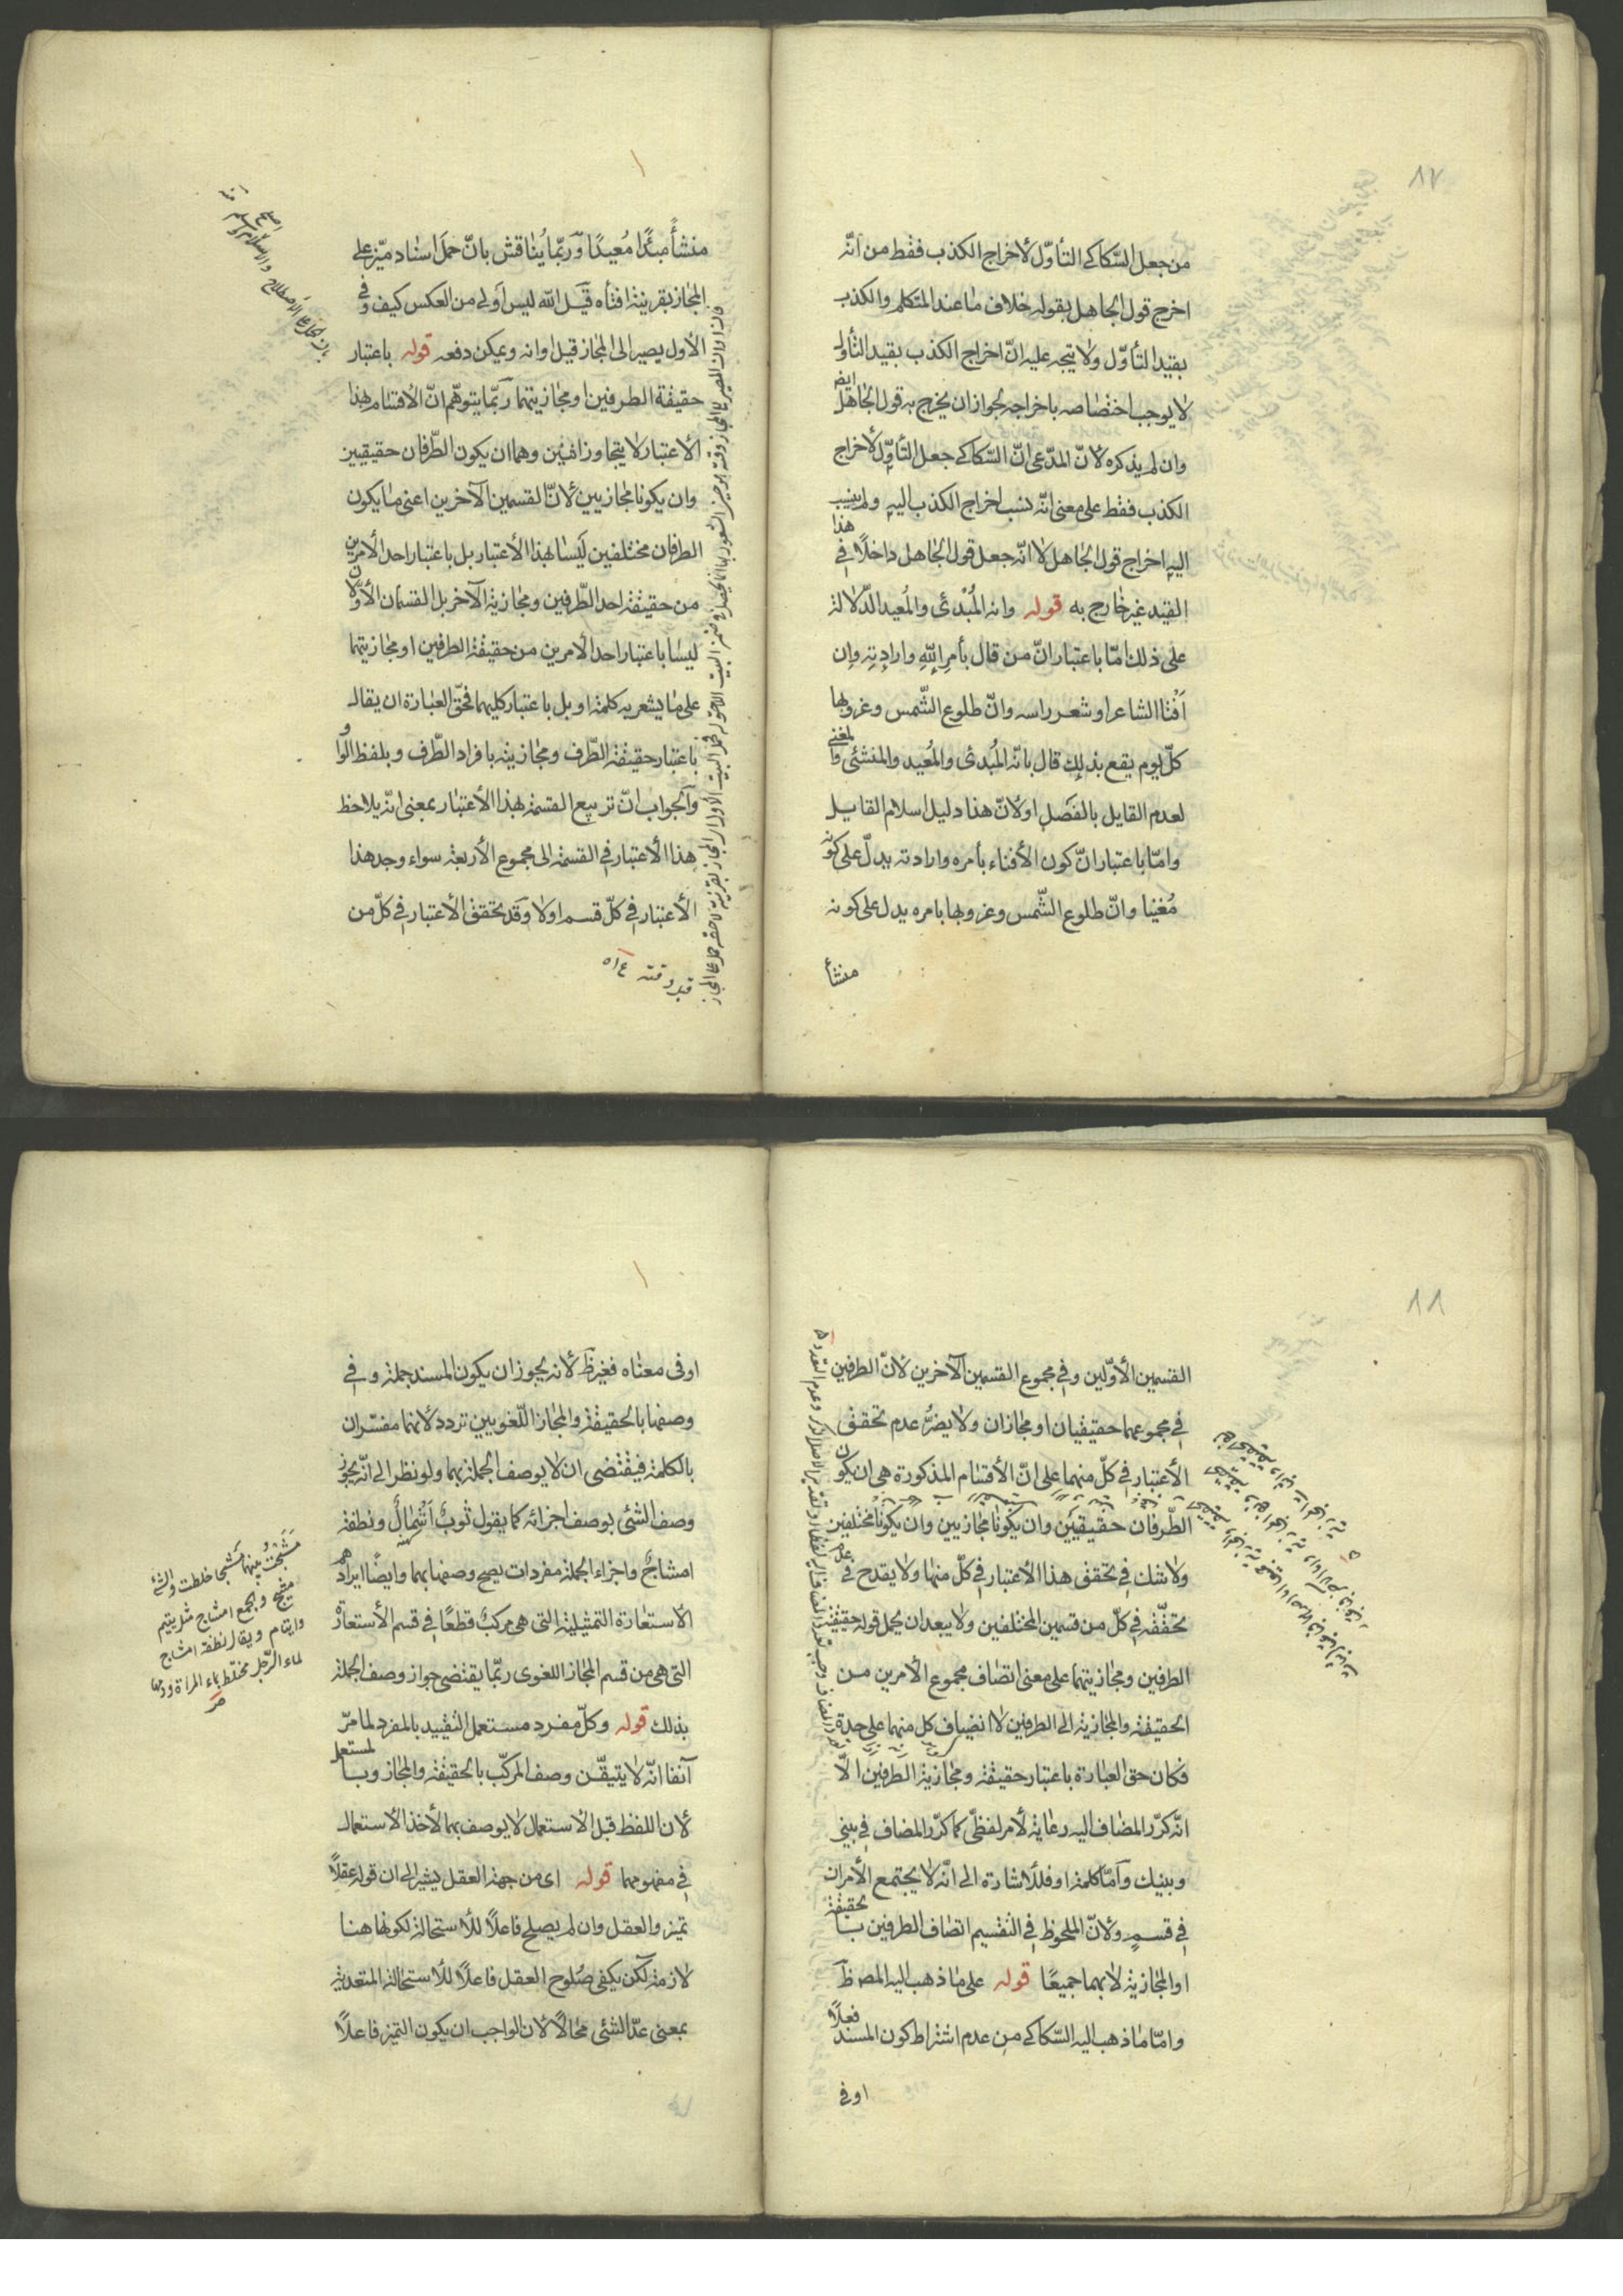 من جعل السّكاكے التأوّل لأخراج الكذب فقط من انّه
اخرج قول الجاهل بقوله خلاف ما عند المتكلم والكذب
بقيد التأوّل ولا يتجه عليه انّ اخراج الكذب بقيد التأول
لا يوجب اختصاصه باخراجه لجواز ان يخرج به قول الجاهل ايض
وان لم يذكره لانّ المدّعى انّ السّكاكے جعل التأوّل لأخراج
الكذب فقط على معنى انّه نسب اخراج الكذب اليه ولم ينسب
اليه اخراج قول الجاهل لا انّه جعل قول الجاهل داخلًا في هذا
القيد غير خارج به قوله وانه المُبْدئ والمُعيد الدّلالة
على ذلك امّا باعتبار انّ من قال بأمر اللّه وارادته وان
اَفْنا الشاعر او شعر راسه وانّ طلوع الشّمس وغروبها
كلّ يوم يقع بذلك قال بانّه المُبدئ والمُعيد والمنشئ والمغنے
لعدم القايل بالفصل او لانّ هذا دليل اسلام القايل
وامّا باعتبار انّ كون الأفناء بأمره وارادته يدلّ على كونه
مُغنيا وانّ طلوع الشّمس وغروبها بامره يدل على كونه
منشأ
منشأً مبدًا مُعيدًا وربّما يُناقش بانّ حمل اسناد ميّز على
المجاز بقرينة افناه قيل اللّه ليس اولى من العكس كيف وفى
الأول يصير الى المجاز قبل اوانه ويمكن دفعه قوله باعتبار
حقيقة الطرفين او مجازيتهما ربّما يتوهّم انّ الأقسام لهذا
الأعتبار لا يتجاوز اثنين وهما ان يكون الطّرفان حقيقيين
وان يكونا مجازيين لانّ القسمين الآخرين اعنى ما يكون
الطرفان مختلفين ليسا بهذا الأعتبار بل باعتبار احد الأمرين
من حقيقة احد الطّرفين ومجازية الآخر بل القسمان الأوّلان
ليسا باعتبار احد الأمرين من حقيقة الطرفين او مجازيتهما
على ما يشعر به كلمة او بل باعتبار كليهما فحقّ العبارة ان يقال
باعتبار حقيقة الطّرف ومجازيته بافراد الطّرف وبلفظ الواو
والجواب انّ تربيع القسمة بهذا الأعتبار بمعنى انّه يلاحظ
هذا الأعتبار في القسمة الى مجموع الأربعة سواء وجد هذا
الأعتبار في كلّ قسم اولا وقد تحقق الأعتبار في كلّ من
القسمين الأوّلين وفي مجموع القسمين الآخرين لانّ الطرفين
في مجموعهما حقيقيان او مجازان ولا يضرُّ عدم تحقق
الأعتبار في كلّ منهما على انّ الأقسام المذكورة هى ان يكون
الطّرفان حقيقيَين وان يكونا مجازيين وان يكونا مختلفين
ولا شك في تحقق هذا الأعتبار في كلّ منها ولا يقدح فى عدم
تحقّقه في كلّ من قسمين المختلفين ولا يبعد ان يحمل قوله حقيقة
الطرفين ومجازيتهما على معنى اتصاف مجموع الأمرين من
الحقيقة والمجازية الى الطرفين لا انضياف كل منهما على حدة
فكان حق العبارة باعتبار حقيقة ومجازية الطّرفين الّا
انّه كرّر المضاف اليه رعاية لأمر لفظّى كما كرّر المضاف في بيني
وبينك وامّا كلمة او فللأشارة الى انّه لا يجتمع الأمران
في قسمٍ ولانّ الملحوظ في التقسيم اتصاف الطرفين بالحقيقة
او المجازية لا بهما جميعًا قوله على ما ذهب اليه المصـ ظَ
وامّا ما ذهب اليه السّكاكے من عدم اشتراط كون المسند فعلًا
اوفى
اوفى معناه فغيرظَ لانه يجوز ان يكون المسند جملة وفى
وصفها بالحقيقة والمجاز اللّغويين تردد لانهما مفسّران
بالكلمة فيقتضى ان لا يوصف الجملة بهما ولو نظر الى انّه يجوز
وصف الشئ بوصف اجزائه كما يقول ثوبٌ اَسْمالٌ ونطفة
امشاجٌ واجزاء الجملة مفردات يصح وصفها بهما وايضًا ايرادهم
الأستعارة التمثيلية التى هى مركبٌ قطعًا في قسم الأستعارة
التى هى من قسم المجاز اللغوى ربّما يقتضى جواز وصف الجملة
بذلك قوله وكلّ مفرد مستعمل التقييد بالمفرد لما مرّ
آنفا انّه لا يتيقّن وصف المركّب بالحقيقة والمجاز وبالمستعمل
لأن اللفظ قبل الأستعمال لا يوصف بهما لأخذ الأستعمال
في مفهومهما قوله اى من جهة العقل يشير الى ان قوله عقلًا
تميز والعقل وان لم يصلح فاعلًا للأستحالة لكونها هنا
لازمة لكن يكفى صُلوح العقل فاعلًا للأستحالة المتعدية
بمعنى عدّ الشئ محالًا لان الواجب ان يكون التميز فاعلًا
مَشَجْتُ بينهما مَشجا خلطت والشئ
مشيج والجمع امشاج مثل يتيم
وايتام ويقال نطفة امشاج
لماء الرّجل مختلط بماء المرأة ودمها